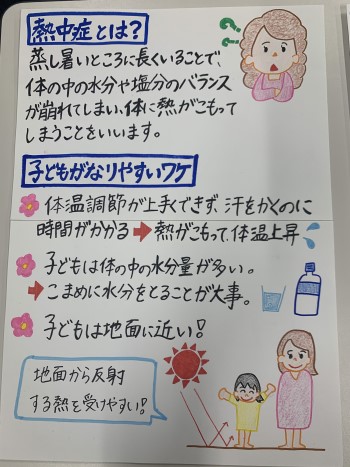 熱中症とは?
蒸し暑いところに長くいることで、
体の中の水分や塩分のバランス
が崩れてしまい、体に熱がこもって
しまうことをいいます。
子どもがなりやすいワケ
体温調節が上手くできず、汗をかくのに
時間がかかる➡熱がこもって、体温上昇
子どもは体の中の水分量が多い。
➡こまめに水分をとることが大事。
子どもは地面に近い!
地面から反射
する熱を受けやすい!